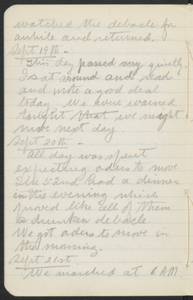 watched the debacle for
awhile and returned.
Sept 19th -
This day passed very quietly
I sat around and read
and wrote a good deal
today. We were warned
tonight that we might
move next day
Sept 20th -
All day was spent
expecting orders to move
The band had a dinner
in the evening which
proved like all of them
a drunken debacle.
We got orders to move in
the morning.
Sept 21st.
We marched at 6 AM